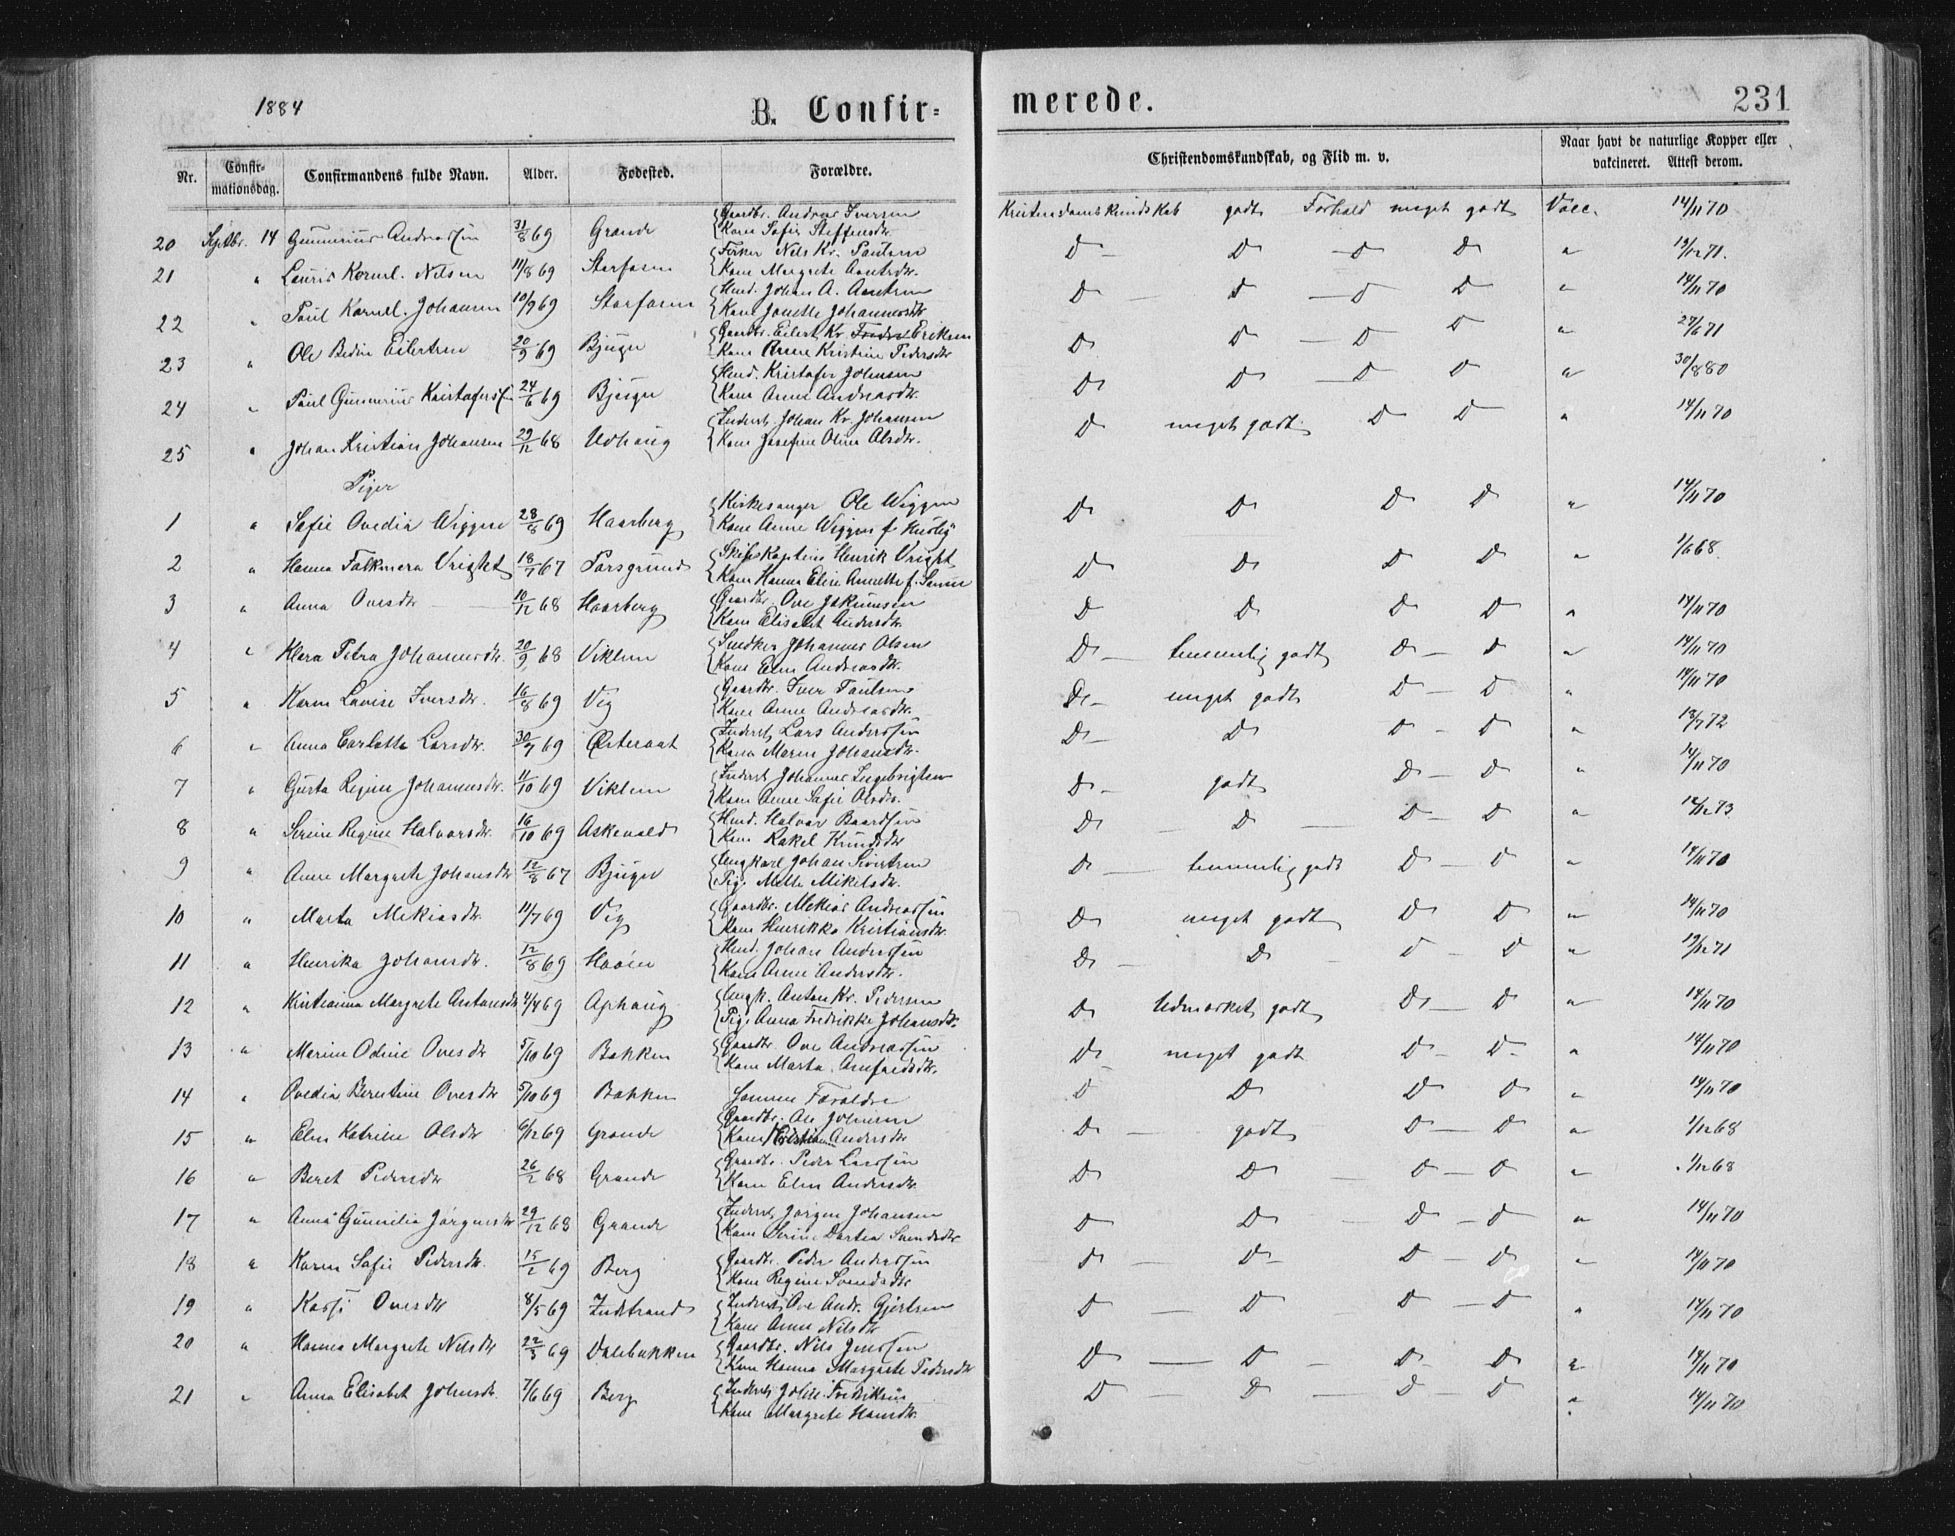 1884
B. Confir-
merede.
231
Nr. Confir-mationsdag. Confirmandens fulde Navn. Alder. Fødested. Forældre. Christendomskundskab, og Flid m. v. Naar havt de naturlige Kopper eller vakcineret. Attest derom.
20 Septbr. 14 Gunnerius Andreassen 31/8 69 Grande {Gaardbr. Andreas Iversen Kone Sofie Steffensdtr. Kristendomskundskab godt Forhold meget godt Vacc. 14/11 70
21 " Lauris Kornel. Nilsen 11/8 69 Storfosen {Nils Kr. Paulsen Kone Margrete D D D D " 19/12 71.
22 " Paul Kornel. Johansen 10/9 69 Storfosen {Husd. Johan A. Kone Jonette Johannesdtr D D D D " 14/11 70
23 " Ole Bedin Eilertsen 20/9 69 Bjugn {Gaardbr. Eilert Kr. Eriksen Kone Anne Kristine Pedersdtr D D D D " 27/6 71
24 " Paul Gunnerius Kristofers. 24/6 69 Bjugn {Husd. Kristofer Johnsen Kone Anne Andreasdtr. D D D D " 30/8 80
25 " Johan Kristian Johansen 29/12 68 Udhaug {Inderst. Johan Kr. Johansen Kone Josefine Oline Olsdtr. D meget godt D D " 14/11 70
Piger
1 " Sofie Ovedia Wiggen 28/8 69 Haarberg {Kirkesanger Ole Wiggen Kone Anne Wiggen f. Husby D D D D " 14/11 70
2 " Hanna Falkmera Vright 18/7 67 Porsgrund {Skibskaptein Henrik Vright Kone Hanna Elise Annette f. D D D D " 1/6 68.
3 " Anna Ovesdtr 10/12 68 Haarberg {Gaardbr. Ove Jakumsen Kone Elisabet Andersdtr. D D D D " 14/11 70
4 " Klara Petra Johannesdtr. 20/9 68 Viklem {Snedker Johannes Olsen Kone Elen Andreasdtr. D temmelig godt D D " 14/11 70
5 " Karen Lovise Iversdtr. 16/8 69 Vig {Gaardbr. Iver Paulsen Kone Anne Andreasdtr. D meget godt D D " 14/11 70
6 " Anna Carlotta Larsdtr. 30/7 69 Østeraat {Inderst Lars Anderssen Kone Maren Johansdtr. D D D D " 13/7 72
7 " Gusta Regine Johannesdtr. 11/10 69 Viklem {Inderst Johannes Ingebrigtsen Kone Anne Sofie Olsdtr. D godt D D " 14/11 70
8 " Serine Regine Halvorsdtr. 16/10 69 Askevold {Husd. Halvor Baardsen Kone Rakel Knudsdtr D D D D " 12/12 73
9 " Anne Margrete Johansdtr 12/8 67 Bjugn {Ungkarl Johan Sivertsen Pige Mette Mikelsdtr. D temmelig godt D D " 14/11 70
10 " Marta Mekiasdtr. 11/7 69 Vig {Gaardbr. Mekias Andreassen Kone Henrikka Kristiansdtr. D meget godt D D " 14/11 70
11 " Henrika Johansdtr. 12/8 69 {Husd. Johan Anderssen Kone Anne Andersdtr. D D D D " 19/12 71
12 " Kristianna Margrete Antonsdtr 4/4 69 Ophaug {Ungk. Anton Kr. Pedersen Pige Anna Fredrikke Johansdtr. D Udmærket godt D D " 14/11 70
13 " Marine Odine Ovesdtr 5/10 69 Bakken {Gaardbr. Ove Andreassen Kone Marta D meget godt D D " 14/11 70
14 " Ovedia Berntine Ovesdtr 5/10 69 Bakken Samme Forældre D D D D " 14/11 70
15 " Elen Katrine Olsdtr 6/12 69 Grande {Gaardbr. Ole Johnsen Kone Kristianna Andersdtr D godt D D " 1/12 68
16 " Beret Pedersdtr 26/2 68 Grande {Gaardbr. Peder Larssen Kone Elen Andersdtr. D D D D " 1/12 68
17 " Anna Gunnilia Jørgensdtr 29/12 68 Grande {Inderst Jørgen Johansen Kone Serine Dortea Svendsdtr D D D D " 14/11 70
18 " Karen Sofie Pedersdtr. 15/2 69 Berg {Gaardbr. Peder Anderssen Kone Regine Svendsdtr D D D D " 14/11 70
19 " Ovesdtr 8/5 69 Indstrand {Inderst Ove Andr. Gjertsen Kone Anne Nilsdtr D D D D " 14/11 70
20 " Hanna Margrete Nilsdtr 22/3 69 Dalebakken {Gaardbr. Nils Jenssen Kone Hanna Margrete Pedersdtr D D D D " 14/11 70
21 " Anna Elisabet Johnsdtr. 7/6 69 Berg {Inderst John Fredriksen Kone Margrete Hansdtr. D D D D " 14/11 70